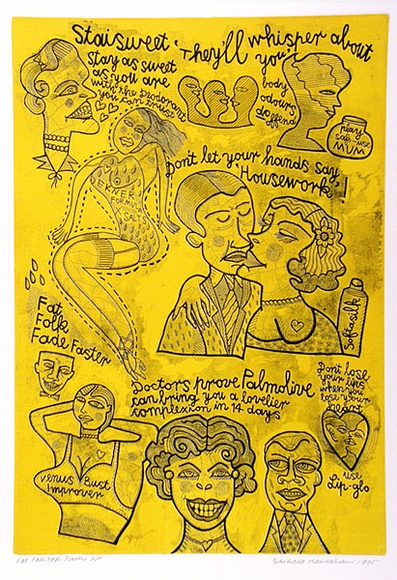 Staisweet
Stay as sweet
as you are
with the Deodorant
you can trust
'They'll whisper about
you'
body
odours
do offend
safe-use
MUM
Don't let your hands say
'Housework'!
FORMULA
SALTS
Softasilk
Fat
Folk
Fade Faster
Doctors prove Palmolive
can bring you a lovelier
complexion in 14 days
Dont lose
your lips
when you
lose your
heart
use
Lip-glo
Venus Bust
Improver
Fat Folk Fade Faster A/P
Barbara Hanrahan